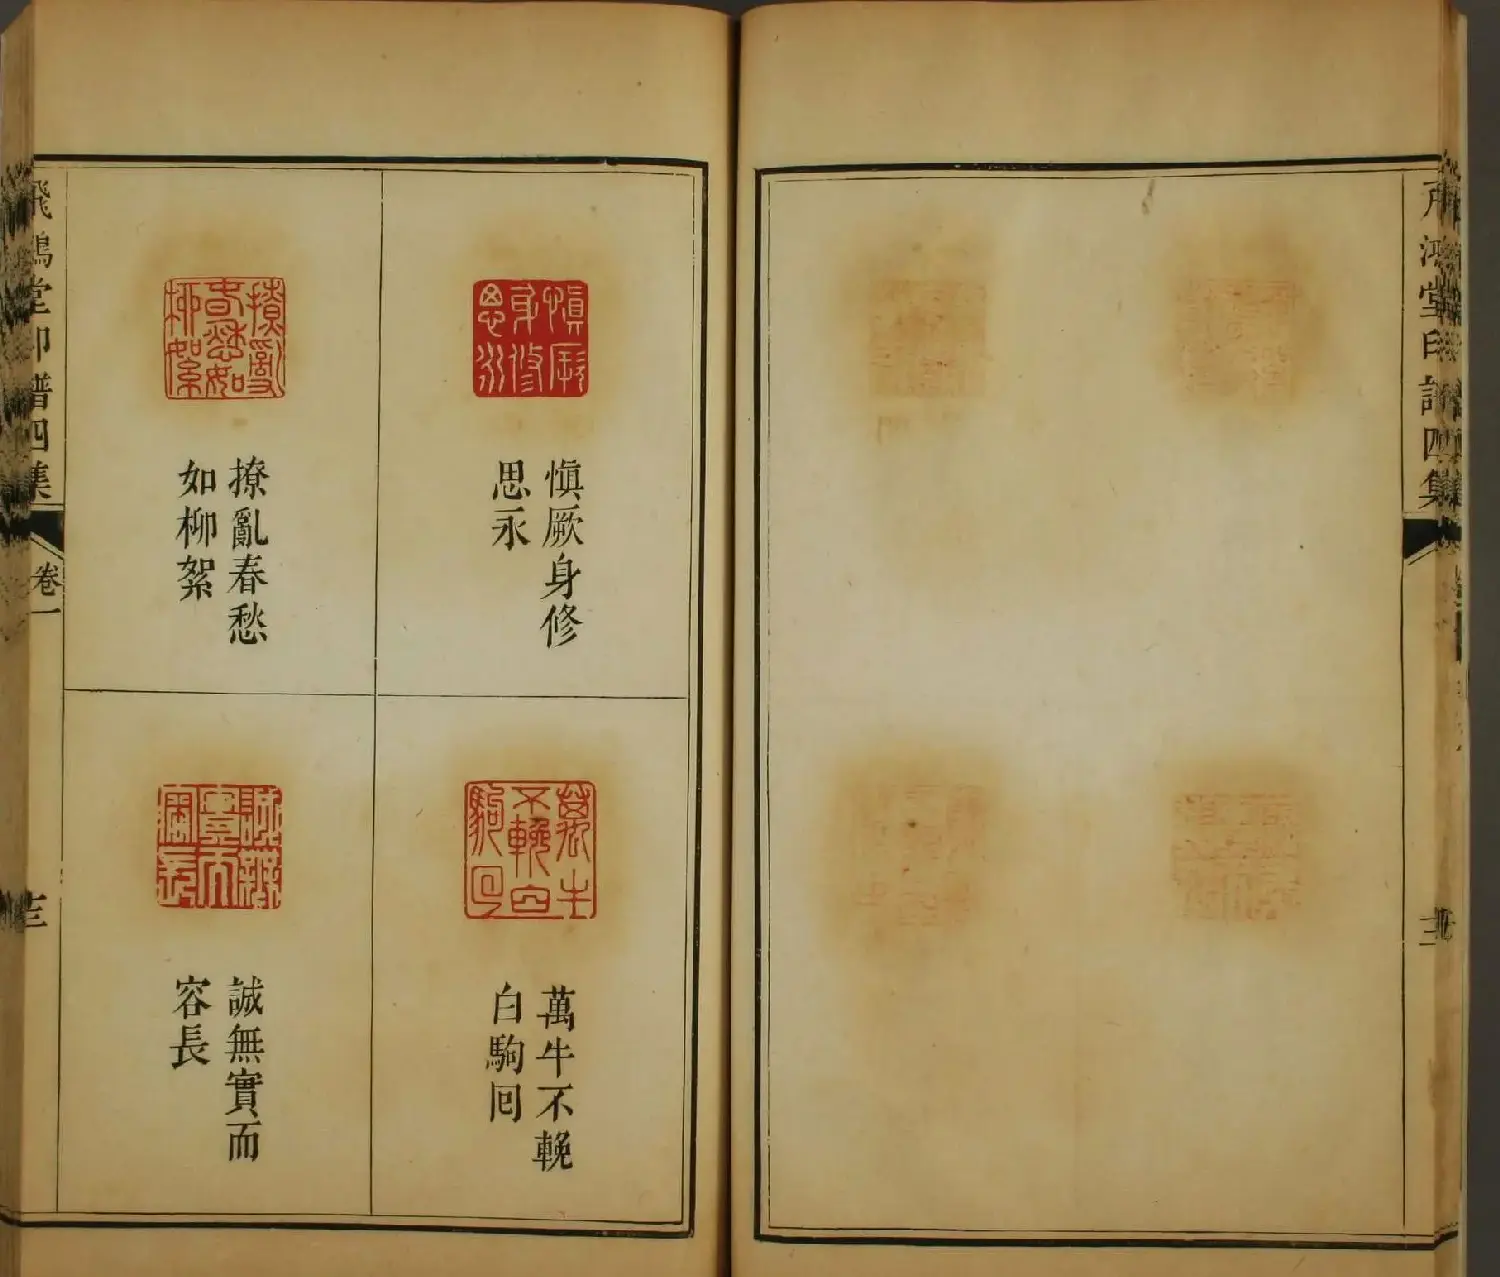 鴻堂印譜四集
慎厥身修
思永
萬牛不輓
白駒囘
撩亂春愁
如柳絮
誠無實而
容長
飛鴻堂印譜四集
卷一